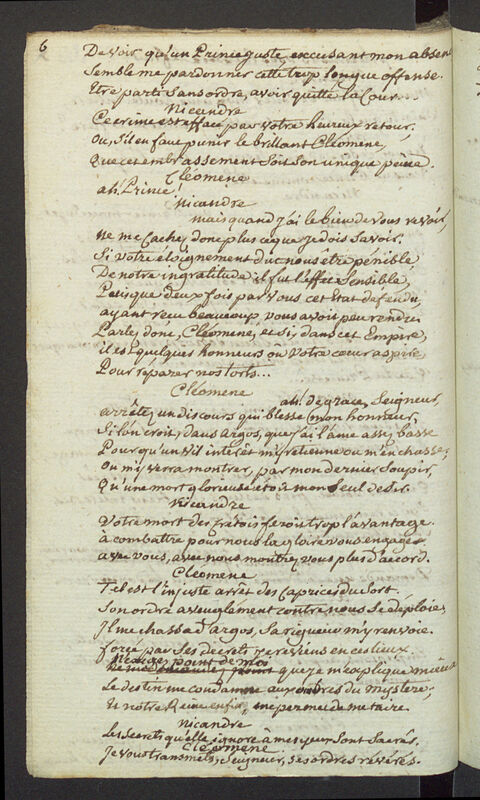 6
De voir qu'un Prince juste excusant mon absen
Semble me pardonner cette trop longue offense.
Etre parti sans ordre, avoir quitté la Cour...
Nicandre
Ce crime est effacé par votre heureux retour.
Ou, s'il en faut punir le brillant Cléomene,
Que cet embrassement soit son unique peine.
Cléomene
ah! Prince!
Nicandre
mais quand j'ai le bien de vous revoir,
Ne me cachez donc plus ce que je dois savoir.
Si votre éloignement dut nous être pénible
De notre ingratitude il fut l'effet sensible,
Puisque deux fois par vous cet Etat défendu
ayant recu beaucoup vous avoit peu rendu
Parlez donc, Cléomene, et si, dans cet Empire,
il est quelques honneurs où votre coeur aspire,
Pour réparer nos torts...
Cléomene
ah! de grace, Seigneur,
arrêtez un discours qui blesse mon honneur,
Si l'on croit, dans Argos, que j'ai l'ame assez basse
Pour qu'un vil intérêt m'y retienne ou m'en chasse;
On m'y verra montrer, par mon dernier soupir,
Qu'une mort glorieuse étoit mon seul desir.
Nicandre
Votre mort des Crétois feroit trop l'avantage.
à combattre pour nous la gloire vous engage
avec vous, avec nous montrez vous plus d'accord.
Cléomene
Tel est l'injuste arrêt des Caprices du Sort.
Son ordre aveuglement contre nous se déploie;
Il me chassa d'argos, sa rigueur m'y renvoie.
forcé par ses decrets je reviens en ces lieux
N'exigez point de moi
que je m'explique mieux
Le destin me condamne aux ombres du mystere;
Et notre Reine enfin, me permet de me taire
Nicandre
Les secrets qu'elle ignore à mes yeux sont sacrés.
Cléomene
Je vous transmets, Seigneur, ses ordres révérés.